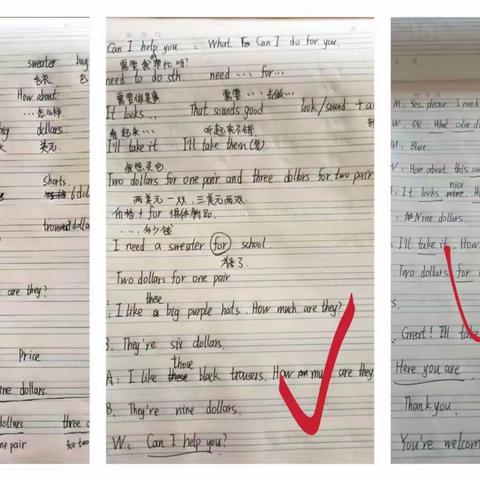 sweater
bag
毛衣
包
How about...
...怎么样
big
dollars.
美元.
shorts.
6 dol
trousers
dolla
are they?
Price
nine dollars.
dollars
three
ne pair
for two
Can I help you = What Can I do for you.
需要我帮忙吗?
need to do sth. need ... for...
需要做某事 需要...去做...
It looks... That sounds good look/sound + a
看起来... 听起来不错
I'll take it I'll take them(复)
我想买它.
Two dollars for one pair and three dollars for two pair
两美元一双,三美元两双.
价格 + for
... 多少钱
I need a sweater for school.
为了.
Two dollars for one pair
these
: I like big purple hats. How much are they?
B. They're six dollars.
those
A: I like these black trousers. How much are they
B. They're nine dollars.
W: Can I help you?
M: Yes, please. I need
W: OK. What color d
M: Blue
W: How about this on
: It looks nice
: Nine dollars.
: I'll take it. How
Two dollars for
s.
. Great! I'll take
Here you are.
Thank you.
You're welcom